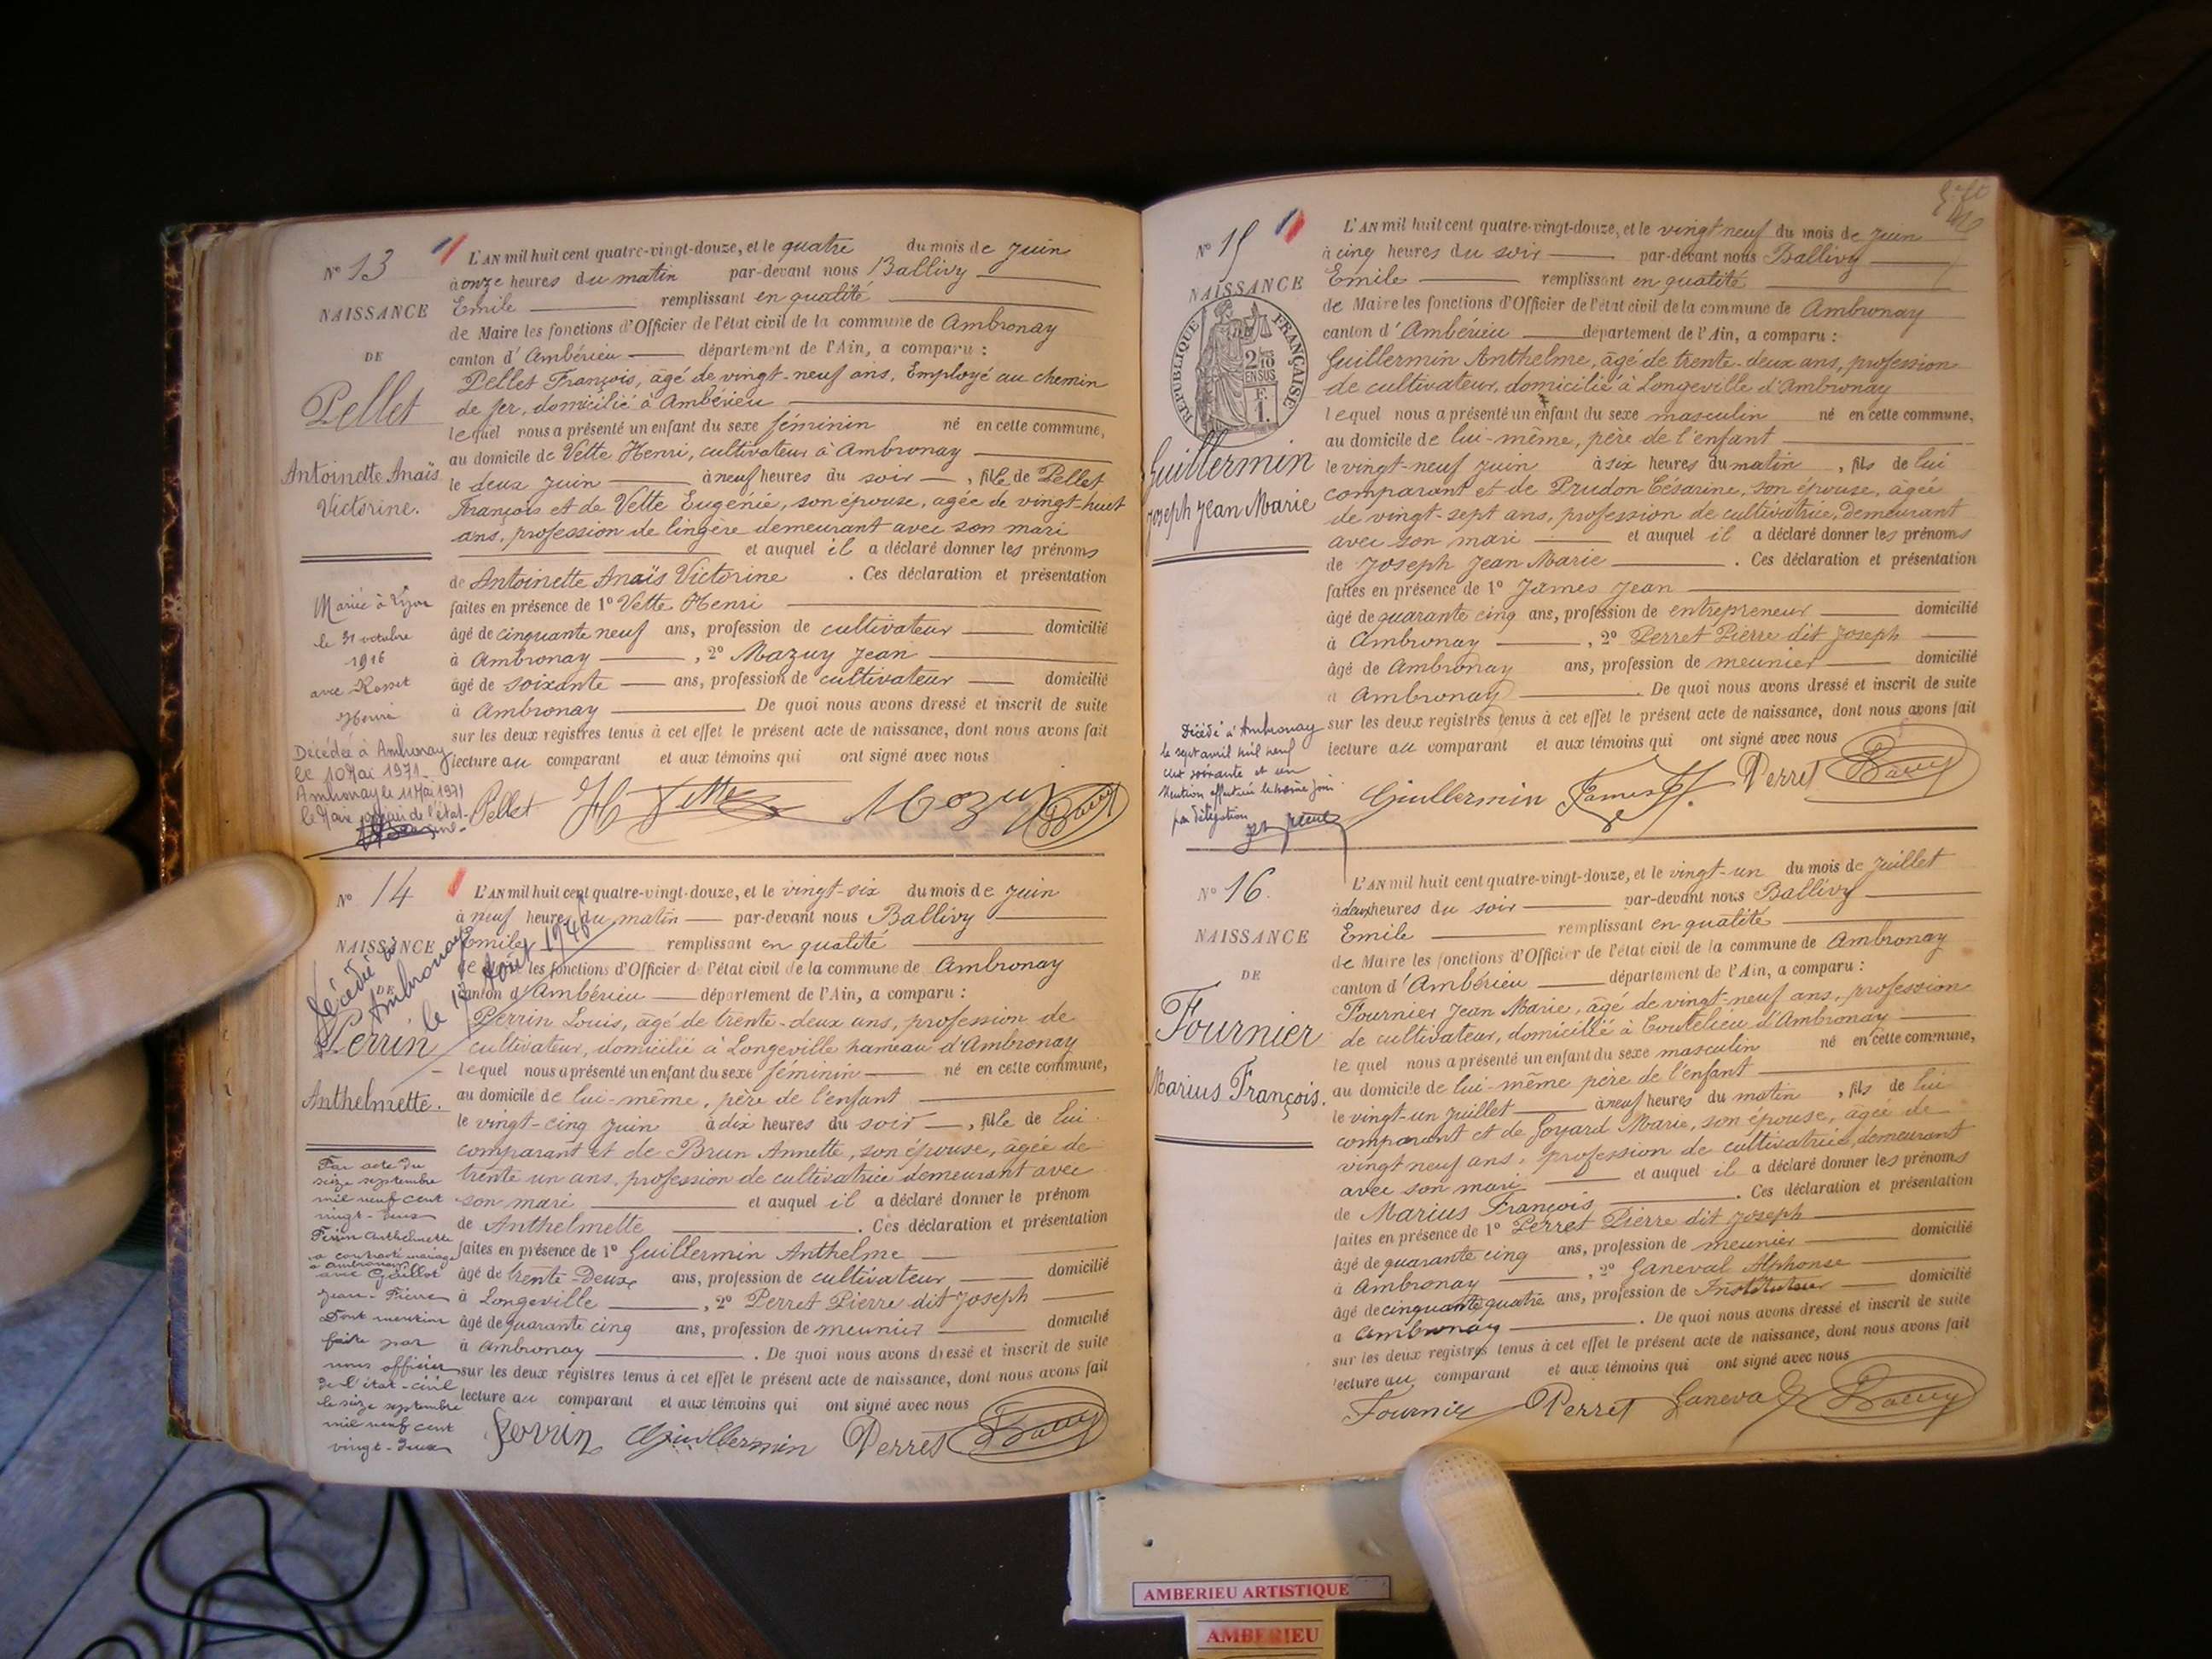 N° 13
NAISSANCE
DE
Pellet
Antoinette Anaïs
Victorine.
Mariée à Lyon
le 31 octobre
1916
avec Rosset
Henri
Décédée à Ambronay
le 10 Mai 1971.
Ambronay le 11 Mai 1971
L'AN mil huit cent quatre-vingt-douze, et le quatre du mois de Juin
à onze heures du matin par-devant nous Ballivy
Emile remplissant en qualité
de Maire les fonctions d'Officier de l'état civil de la commune de Ambronay
canton d'Ambérieu département de l'Ain, a comparu :
Pellet François, âgé de vingt-neuf ans, Employé au chemin
de fer, domicilié à Ambérieu
lequel nous a présenté un enfant du sexe féminin né en cette commune,
au domicile de Vette Henri, cultivateur à Ambronay
le deux Juin à neuf heures du soir, fille de Pellet
François et de Vette Eugénie, son épouse, âgée de vingt-huit
ans, profession de lingère demeurant avec son mari
et auquel il a déclaré donner les prénoms
de Antoinette Anaïs Victorine. Ces déclaration et présentation
faites en présence de 1° Vette Henri
âgé de cinquante neuf ans, profession de cultivateur domicilié
à Ambronay, 2° Mazuy Jean
âgé de soixante ans, profession de cultivateur domicilié
à Ambronay. De quoi nous avons dressé et inscrit de suite
sur les deux registres tenus à cet effet le présent acte de naissance, dont nous avons fait
lecture au comparant et aux témoins qui ont signé avec nous
Pellet H Vette Mazuy
N° 14
NAISSANCE
DE
Perrin
Anthelmette.
Décédée à
Ambronay
le août 1946
Par acte du
seize septembre
mil neuf cent
vingt-deux
Perrin Anthelmette
a contracté mariage
à Ambronay
avec Gaillot
Jean-Pierre
Dont mention
faite par
nous officier
de l'état-civil
le seize septembre
mil neuf cent
vingt-deux
L'AN mil huit cent quatre-vingt-douze, et le vingt-six du mois de Juin
à neuf heures du matin par-devant nous Ballivy
Emile remplissant en qualité
de Maire les fonctions d'Officier de l'état civil de la commune de Ambronay
canton d'Ambérieu département de l'Ain, a comparu :
Perrin Louis, âgé de trente-deux ans, profession de
cultivateur, domicilié à Longeville hameau d'Ambronay
lequel nous a présenté un enfant du sexe féminin né en cette commune,
au domicile de lui-même, père de l'enfant
le vingt-cinq Juin à dix heures du soir, fille de lui
comparant et de Brun Annette, son épouse, âgée de
trente un ans, profession de cultivatrice demeurant avec
son mari et auquel il a déclaré donner le prénom
de Anthelmette. Ces déclaration et présentation
faites en présence de 1° Guillermin Anthelme
âgé de trente-Deux ans, profession de cultivateur domicilié
à Longeville, 2° Perret Pierre dit Joseph
âgé de quarante cinq ans, profession de meunier domicilié
à Ambronay. De quoi nous avons dressé et inscrit de suite
sur les deux registres tenus à cet effet le présent acte de naissance, dont nous avons fait
lecture au comparant et aux témoins qui ont signé avec nous
Perrin Guillermin Perret
N° 15
NAISSANCE
REPUBLIQUE FRANÇAISE
2/10
EN SUS
F.
1.
Guillermin
Joseph Jean Marie
Décédé à Ambronay
le sept avril mil neuf
cent soixante et un
Mention effectuée le même jour
par délégation
L'AN mil huit cent quatre-vingt-douze, et le vingt neuf du mois de Juin
à cinq heures du soir par-devant nous Ballivy
Emile remplissant en qualité
de Maire les fonctions d'Officier de l'état civil de la commune de Ambronay
canton d'Ambérieu département de l'Ain, a comparu :
Guillermin Anthelme, âgé de trente-deux ans, profession
de cultivateur, domicilié à Longeville d'Ambronay
lequel nous a présenté un enfant du sexe masculin né en cette commune,
au domicile de lui-même, père de l'enfant
le vingt-neuf Juin à six heures du matin, fils de lui
comparant et de Prudon Césarine, son épouse, âgée
de vingt-sept ans, profession de cultivatrice, demeurant
avec son mari et auquel il a déclaré donner les prénoms
de Joseph Jean Marie. Ces déclaration et présentation
faites en présence de 1° James Jean
âgé de quarante cinq ans, profession de entrepreneur domicilié
à Ambronay, 2° Perret Pierre dit Joseph
âgé de Ambronay ans, profession de meunier domicilié
à Ambronay. De quoi nous avons dressé et inscrit de suite
sur les deux registres tenus à cet effet le présent acte de naissance, dont nous avons fait
lecture au comparant et aux témoins qui ont signé avec nous
Guillermin James Perret
N° 16.
NAISSANCE
DE
Fournier
Marius François.
L'AN mil huit cent quatre-vingt-douze, et le vingt-un du mois de Juillet
à deux heures du soir par-devant nous Ballivy
Emile remplissant en qualité
de Maire les fonctions d'Officier de l'état civil de la commune de Ambronay
canton d'Ambérieu département de l'Ain, a comparu :
Fournier Jean Marie, âgé de vingt-neuf ans, profession
de cultivateur, domicilié à Coutelieu d'Ambronay
lequel nous a présenté un enfant du sexe masculin né en cette commune,
au domicile de lui-même père de l'enfant
le vingt-un Juillet à neuf heures du matin, fils de lui
comparant et de Goyard Marie, son épouse, âgée de
vingt neuf ans, profession de cultivatrice, demeurant
avec son mari et auquel il a déclaré donner les prénoms
de Marius François. Ces déclaration et présentation
faites en présence de 1° Perret Pierre dit Joseph
âgé de quarante cinq ans, profession de meunier domicilié
à Ambronay, 2° Ganeval Alphonse
âgé de cinquante quatre ans, profession de Instituteur domicilié
à Ambronay. De quoi nous avons dressé et inscrit de suite
sur les deux registres tenus à cet effet le présent acte de naissance, dont nous avons fait
lecture au comparant et aux témoins qui ont signé avec nous
Fournier Perret Ganeval
AMBERIEU ARTISTIQUE
AMBERIEU